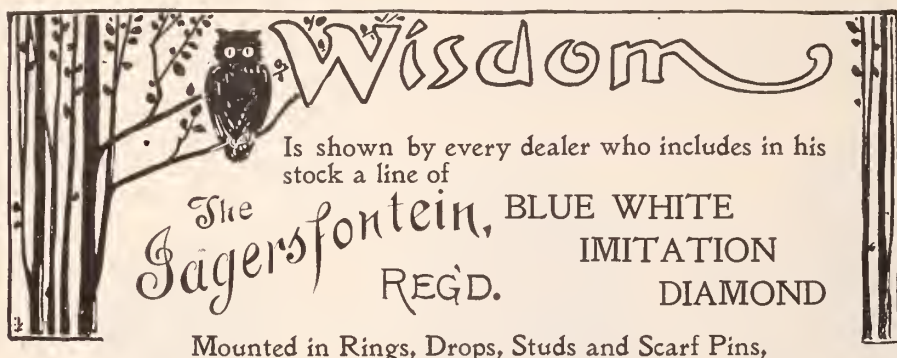 Wisdom
Is shown by every dealer who includes in his
stock a line of
The Jägersfontein, BLUE WHITE
REG'D. IMITATION
DIAMOND
Mounted in Rings, Drops, Studs and Scarf Pins,